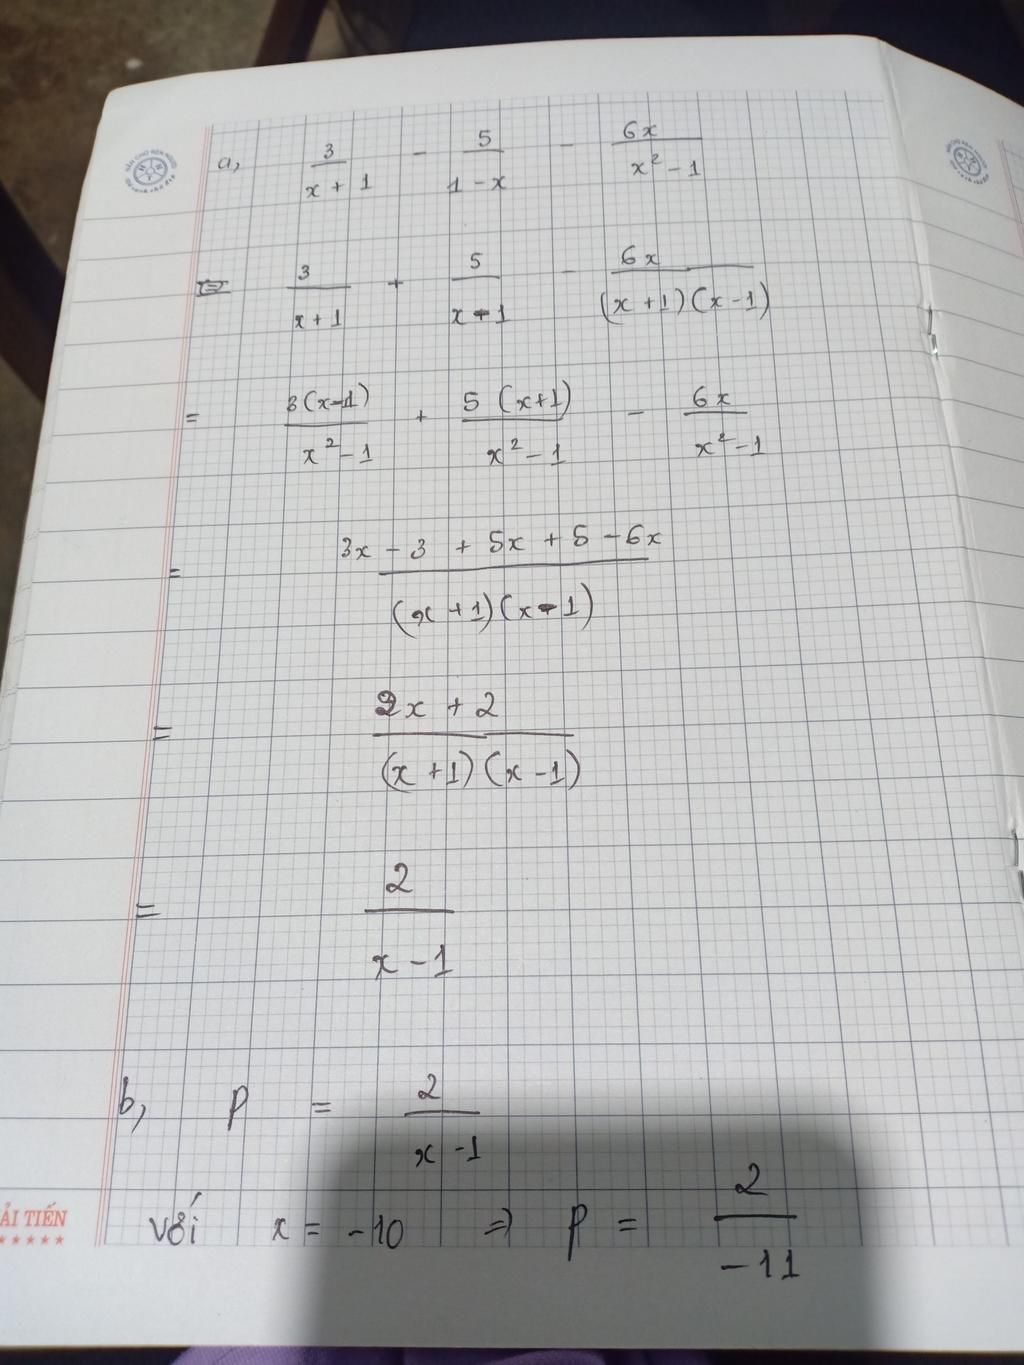 a, 3/(x + 1) - 5/(1 - x) - 6x/(x² - 1)
3/(x + 1) + 5/(x - 1) - 6x/((x + 1)(x - 1))
= 3(x-1)/(x² - 1) + 5(x+1)/(x² - 1) - 6x/(x² - 1)
= (3x - 3 + 5x + 5 - 6x)/((x + 1)(x - 1))
= (2x + 2)/((x + 1)(x - 1))
= 2/(x - 1)
b, P = 2/(x - 1)
với x = -10 ⇒ P = 2/(-11)
ẢI TIẾN